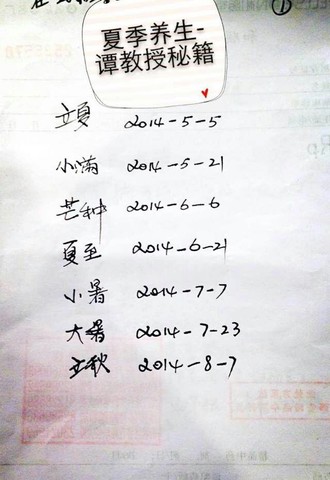 ①
夏季养生-
谭教授秘籍
立夏 2014-5-5
小满 2014-5-21
芒种 2014-6-6
夏至 2014-6-21
小暑 2014-7-7
大暑 2014-7-23
立秋 2014-8-7